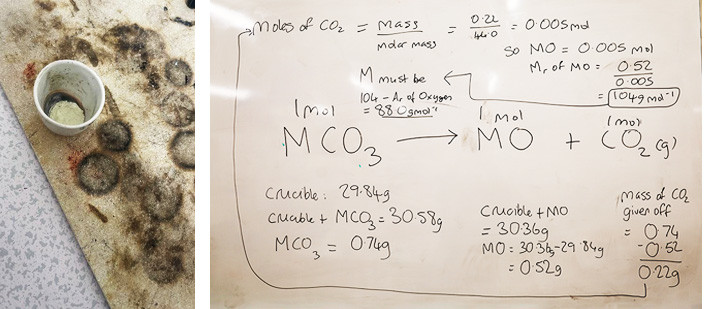 Moles of CO2 = Mass / molar mass = 0.22 / 44.0 = 0.005mol
So MO = 0.005 mol
Mr of MO = 0.52 / 0.005
= 104gmol-1
M must be
104 - Ar of Oxygen
= 88.0gmol-1
1mol 1 mol 1mol
MCO3 → MO + CO2 (g)
Crucible: 29.84g
Crucible + MCO3 = 30.58g
MCO3 = 0.74g
Crucible + MO
= 30.36g
MO = 30.36g - 29.84g
= 0.52g
Mass of CO2
given off
= 0.74
- 0.52
0.22g